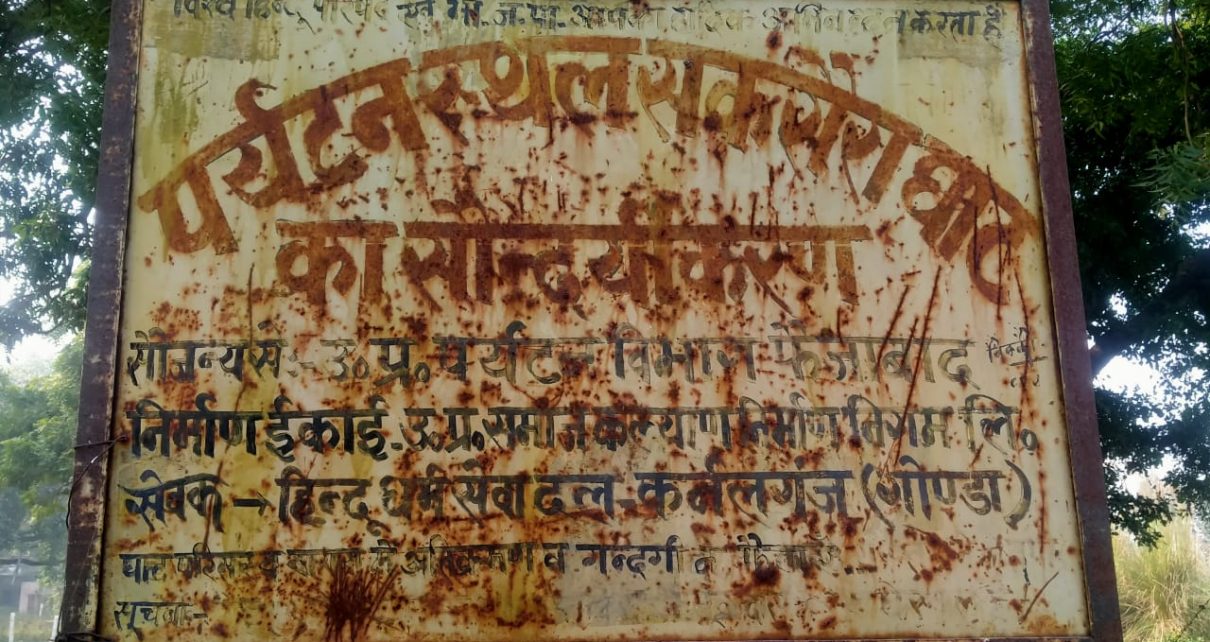 विश्व हिन्दू परिषद एवं भा.ज.पा. आपका हार्दिक अभिनन्दन करता है
पर्यटन स्थल सकरौरा घाट
का सौन्दर्यीकरण
सौजन्य से:- उ.प्र. पर्यटन विभाग फैजाबाद
निर्माण ईकाई. उ.प्र. समाज कल्याण निर्माण निगम लि.
सेवक → हिन्दू धर्म सेवा दल - कर्नलगंज (गोण्डा)
घाट में अतिक्रमण व गन्दगी न
सूचना:-